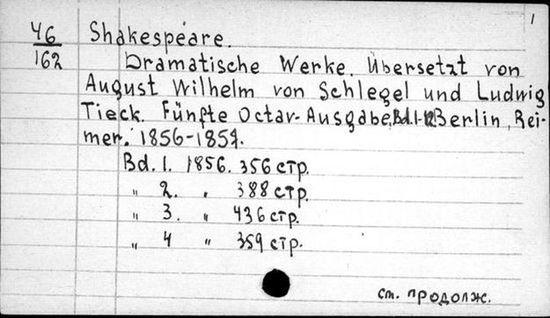 1
46 Shakespeare.
162 Dramatische Werke. Übersetzt von
August Wilhelm von Schlegel und Ludwig
Tieck. Fünfte Octav-Ausgabe. Bd. 1-12 Berlin, Rei-
mer. 1856-1857.
Bd. 1. 1856. 356 стр.
„ 2. „ 388 стр.
„ 3. „ 436 стр.
„ 4 „ 359 стр.
см. продолж.